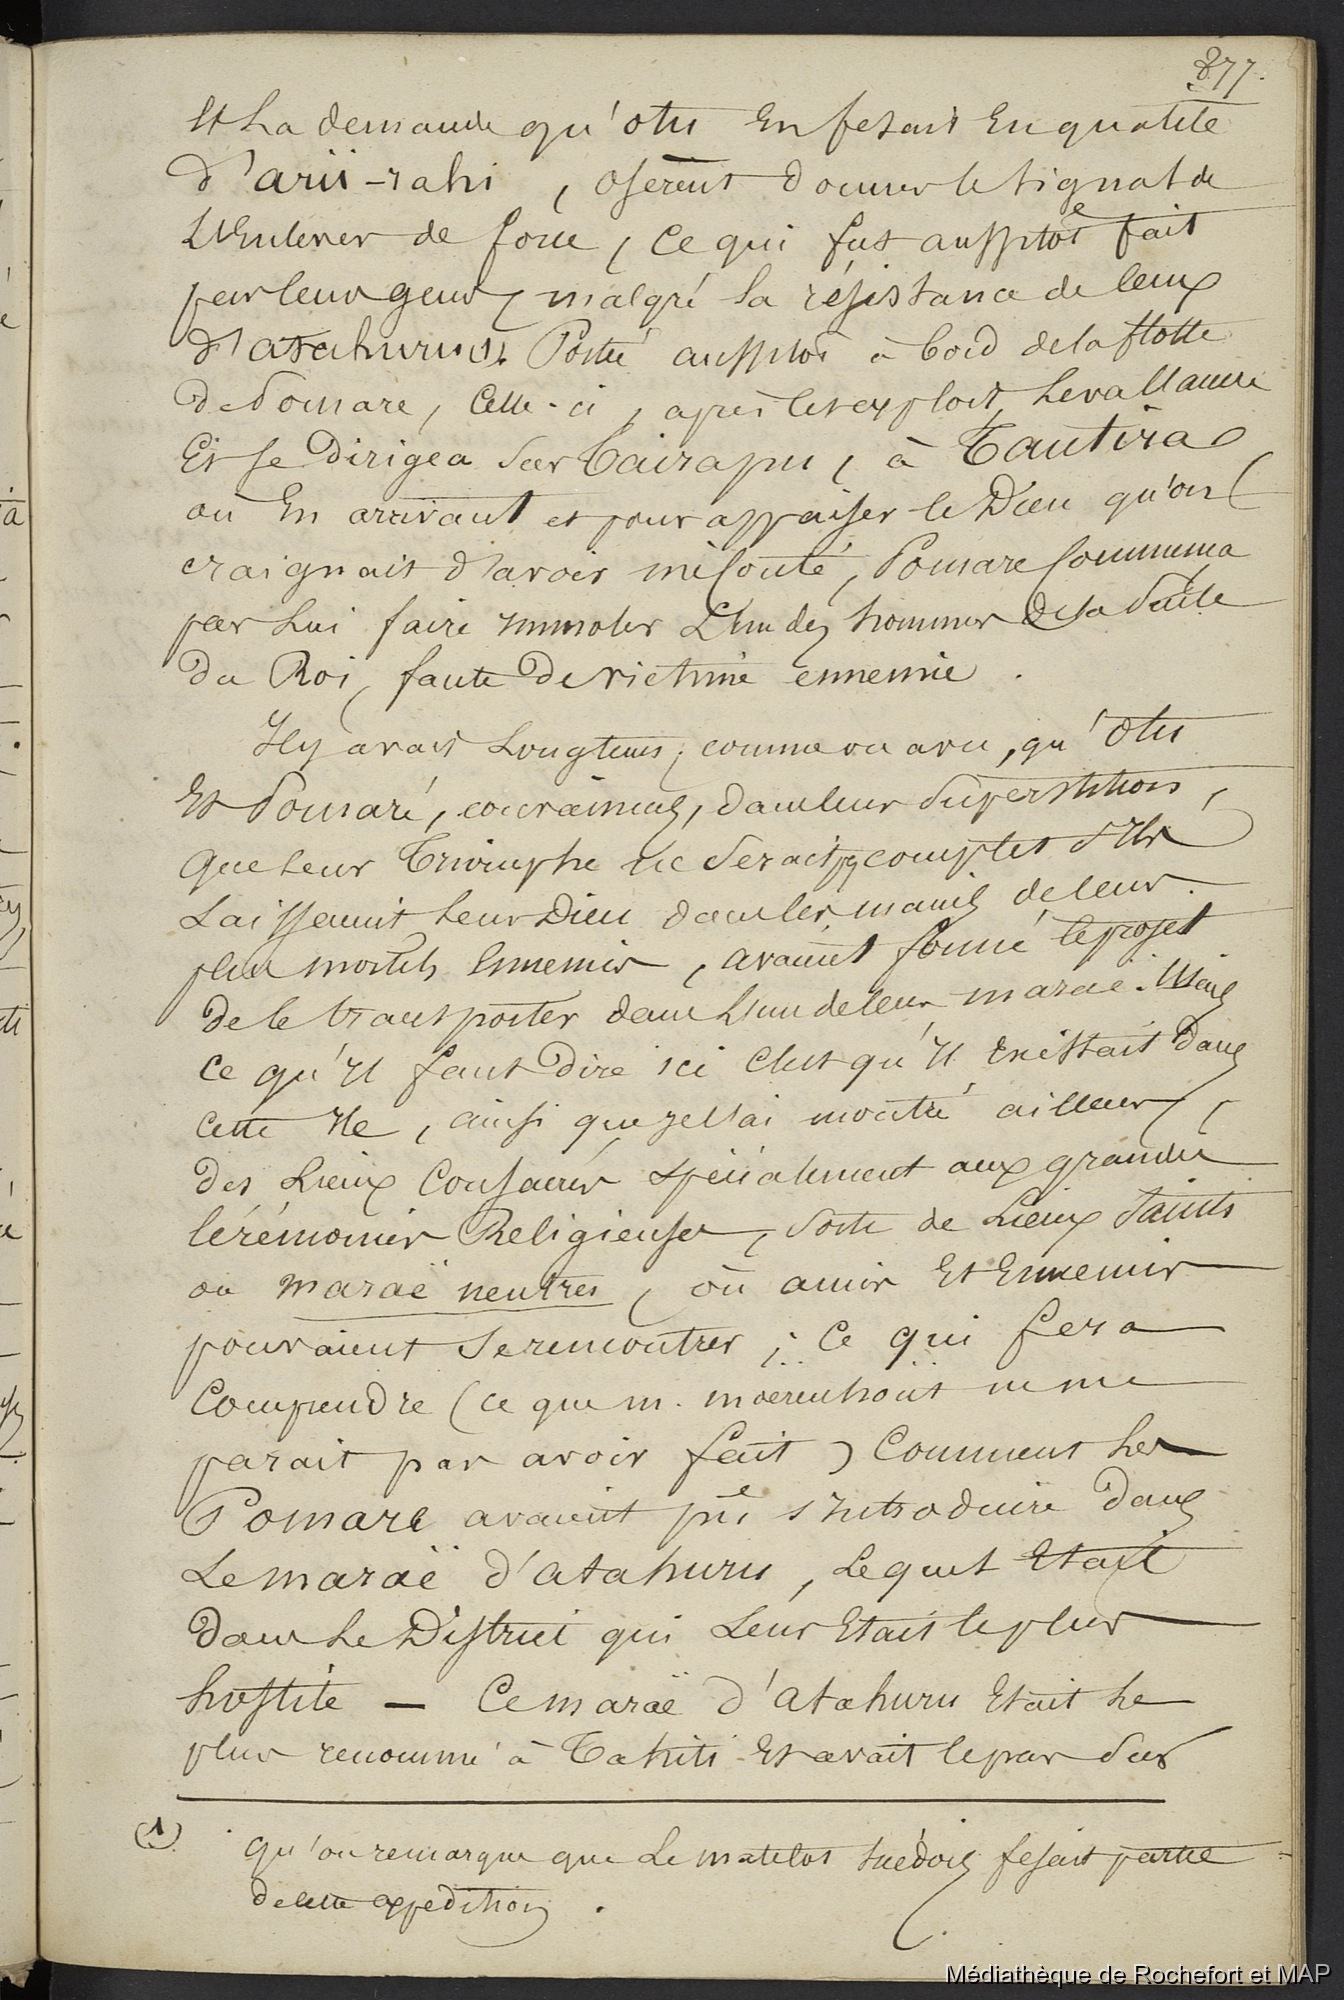 877.
Et La demande qu'otu En fesait En qualité
d'arii-rahi, oserent donner le signal de
L'Enlever de force, ce qui fut aussitôt fait
par leurs gens, malgré la résistance de ceux
d'atahuru (1). Porté aussitôt à bord de la flotte
de Pomare, Celle-ci, après cet exploit, leva l'ancre
Et se Dirigea sur Tairapu, à Tautira
où En arrivant et pour appaiser le Dieu qu'on
craignait d'avoir mécontté, Pomare Commença
par Lui faire immoler L'un des hommes de la suite
Du Roi, faute De victime ennemie.
Il y avait Longtems, comme on a vu, qu'Otu
Et Pomaré, convaincus, dans leur superstition,
que leur Triomphe ne serait pas complet s'Ils
Laissaient leur Dieu dans les mains de leurs
plus mortels Ennemis, avaient formé le projet
De le transporter dans L'un de leurs marae. Mais
ce qu'Il faut Dire ici C'est qu'Il Existait Dans
cette Ile, ainsi que je l'ai montré ailleurs,
Des Lieux Consacrés spécialement aux grandes
Cérémonies Religieuses, sorte de Lieux Saints
ou maraë neutres, où amis Et Ennemis
pouvaient se rencontrer; Ce qui fera
Comprendre (ce que m. moerenhoüt ne me
parait pas avoir fait) Comment les
Pomare avaient pu s'Introduire Dans
Le maraë d'atahuru, Lequel Etait
Dans Le District qui Leur Etait le plus
hostile — Ce maraë d'atahuru Etait le
plus renommé à Tahiti Et avait le pas sur
(1) qu'on remarque que Le matelot suédois fesait partie
De cette expédition.
Médiathèque de Rochefort et MAP